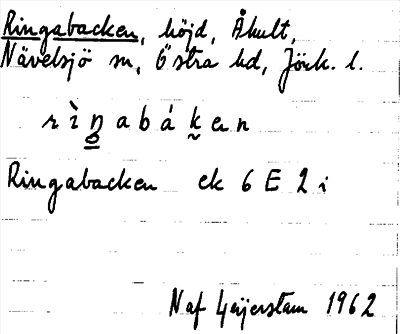 Ringabacken, höjd, Åhult,
Nävelsjö sn, Östra hd, Jönk. l.
rìŋabáken
Ringabacken ek 6 E 2 i
Naf Geijerstam 1962